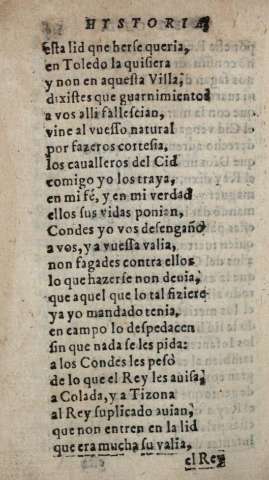 HYSTORIA
esta lid que herse queria,
en Toledo la quisiera
y non en aquesta Villa,
dixistes que guarnimientos
a vos alli fallescian,
vine al vuesso natural
por fazeros cortesia,
los caualleros del Cid
comigo yo los traya,
en mi fé, y en mi verdad
ellos sus vidas ponian,
Condes yo vos desengaño
a vos, y a vuessa valia,
non fagades contra ellos
lo que hazerse non deuia,
que aquel que lo tal fiziere
ya yo mandado tenia,
en campo lo despedacen
sin que nada se les pida:
a los Condes les pesò
de lo que el Rey les auisa,
a Colada, y a Tizona
al Rey suplicado auian,
que non entren en la lid
que era mucha su valia,
el Rey